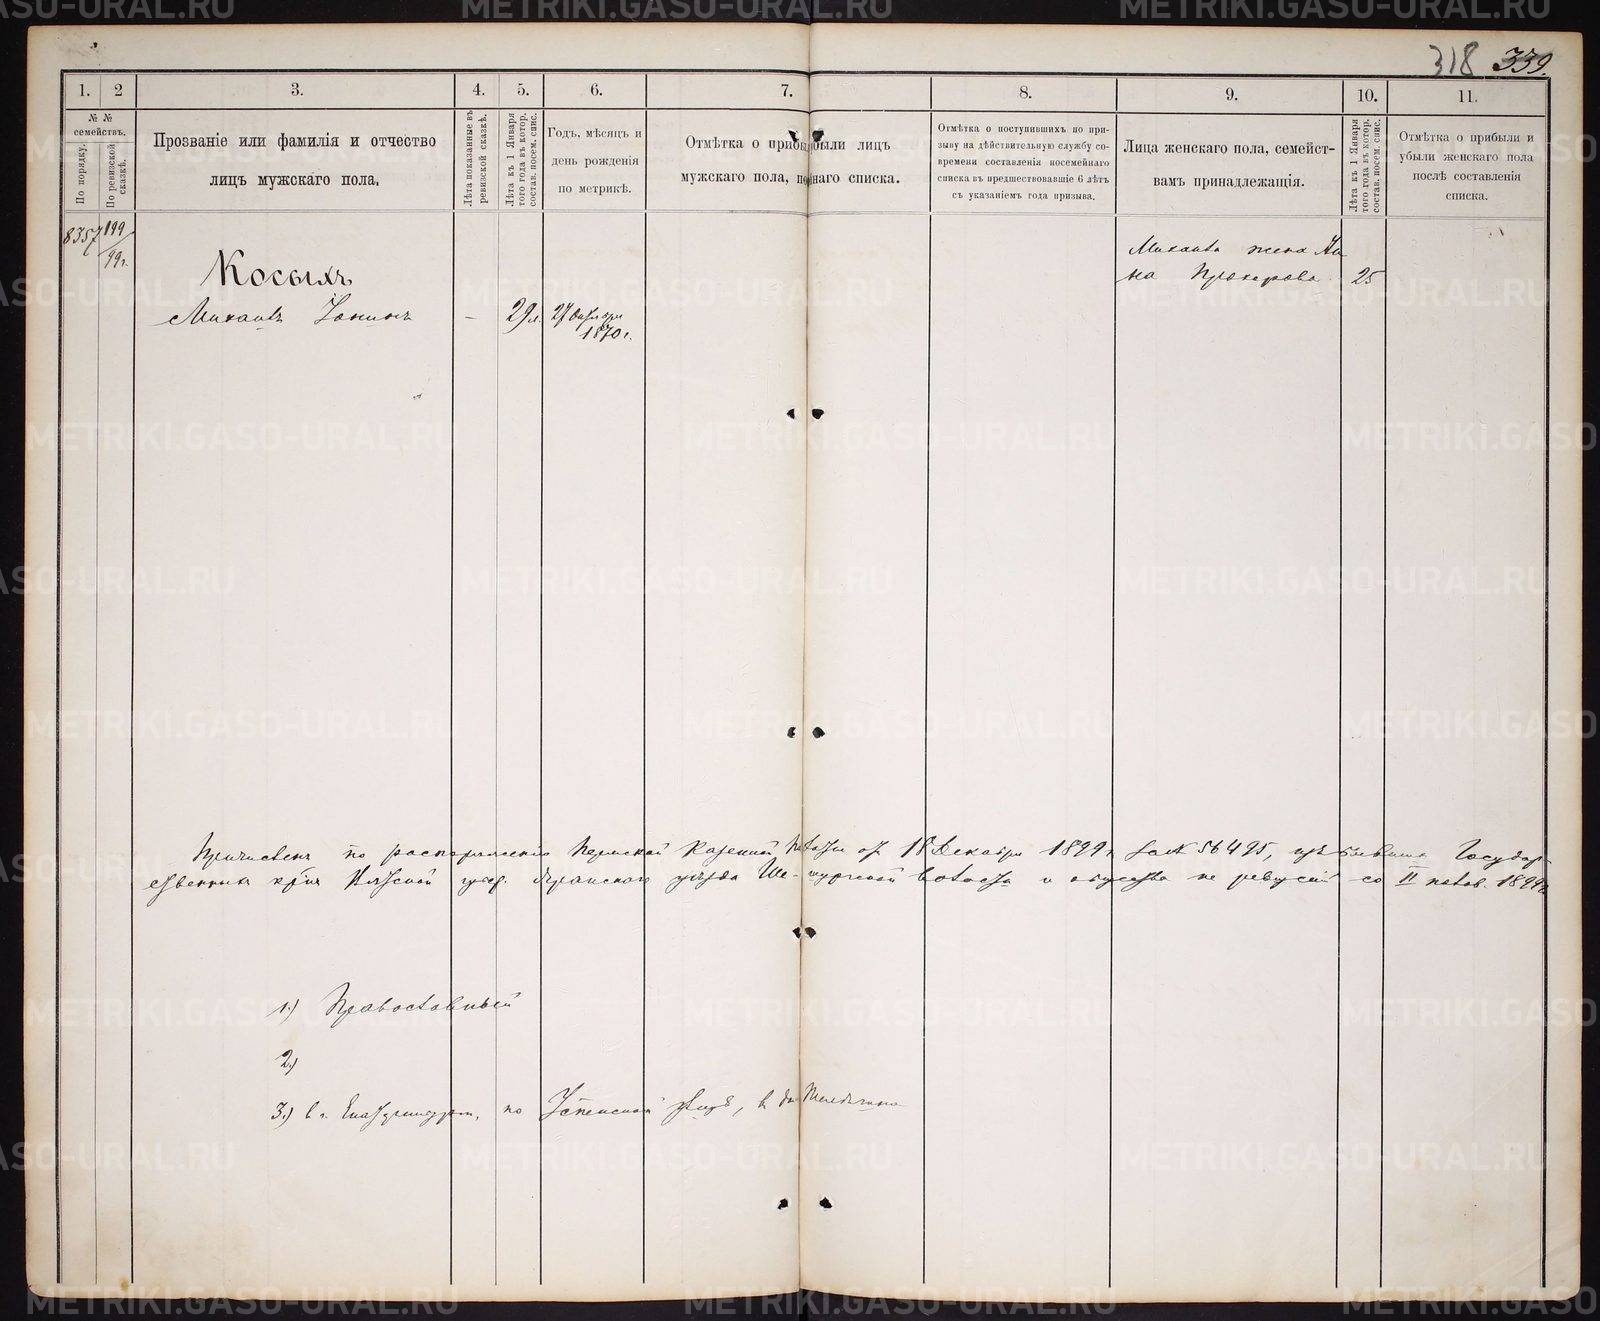 318 339.
1. 2 3. 4. 5. 6. 7. 8. 9. 10. 11.
№ №
семействъ.
По порядку.
По ревизской
сказкѣ.
Прозваніе или фамилія и отчество
лицъ мужскаго пола.
Лѣта показанные въ
ревизской сказкѣ.
Лѣта къ 1 Января
того года въ котор.
состав. посем. спис.
Годъ, мѣсяцъ и
день рожденія
по метрикѣ.
Отмѣтка о приб были лицъ
мужскаго пола, по наго списка.
Отмѣтка о поступившихъ по при-
зыву на дѣйствительную службу со-
времени составленія посемейнаго
списка въ предшествовавшіе 6 лѣтъ
съ указаніемъ года призыва.
Лица женскаго пола, семейст-
вамъ принадлежащія.
Лѣта къ 1 Января
того года въ котор.
состав. посем. спис.
Отмѣтка о прибыли и
убыли женскаго пола
послѣ составленія
списка.
8357 199
99 г.
Косыхъ
Михаилъ - 29 л.
1870 г.
Михаила жена Ан
на Прохорова 25
Причисленъ по распоряженію Пермской Казенной Палаты отъ 18 Декабря 1899 г. за № 56495, изъ Государ-
ственныхъ Вятской губер. Яранскаго уѣзда Ше-шургской волости и общества со II полов. 1899 г.
1.) Православный
2.)
3.) въ г. Екатеринбургѣ, по Успенской въ д.
METRIKI.GASO-URAL.RU